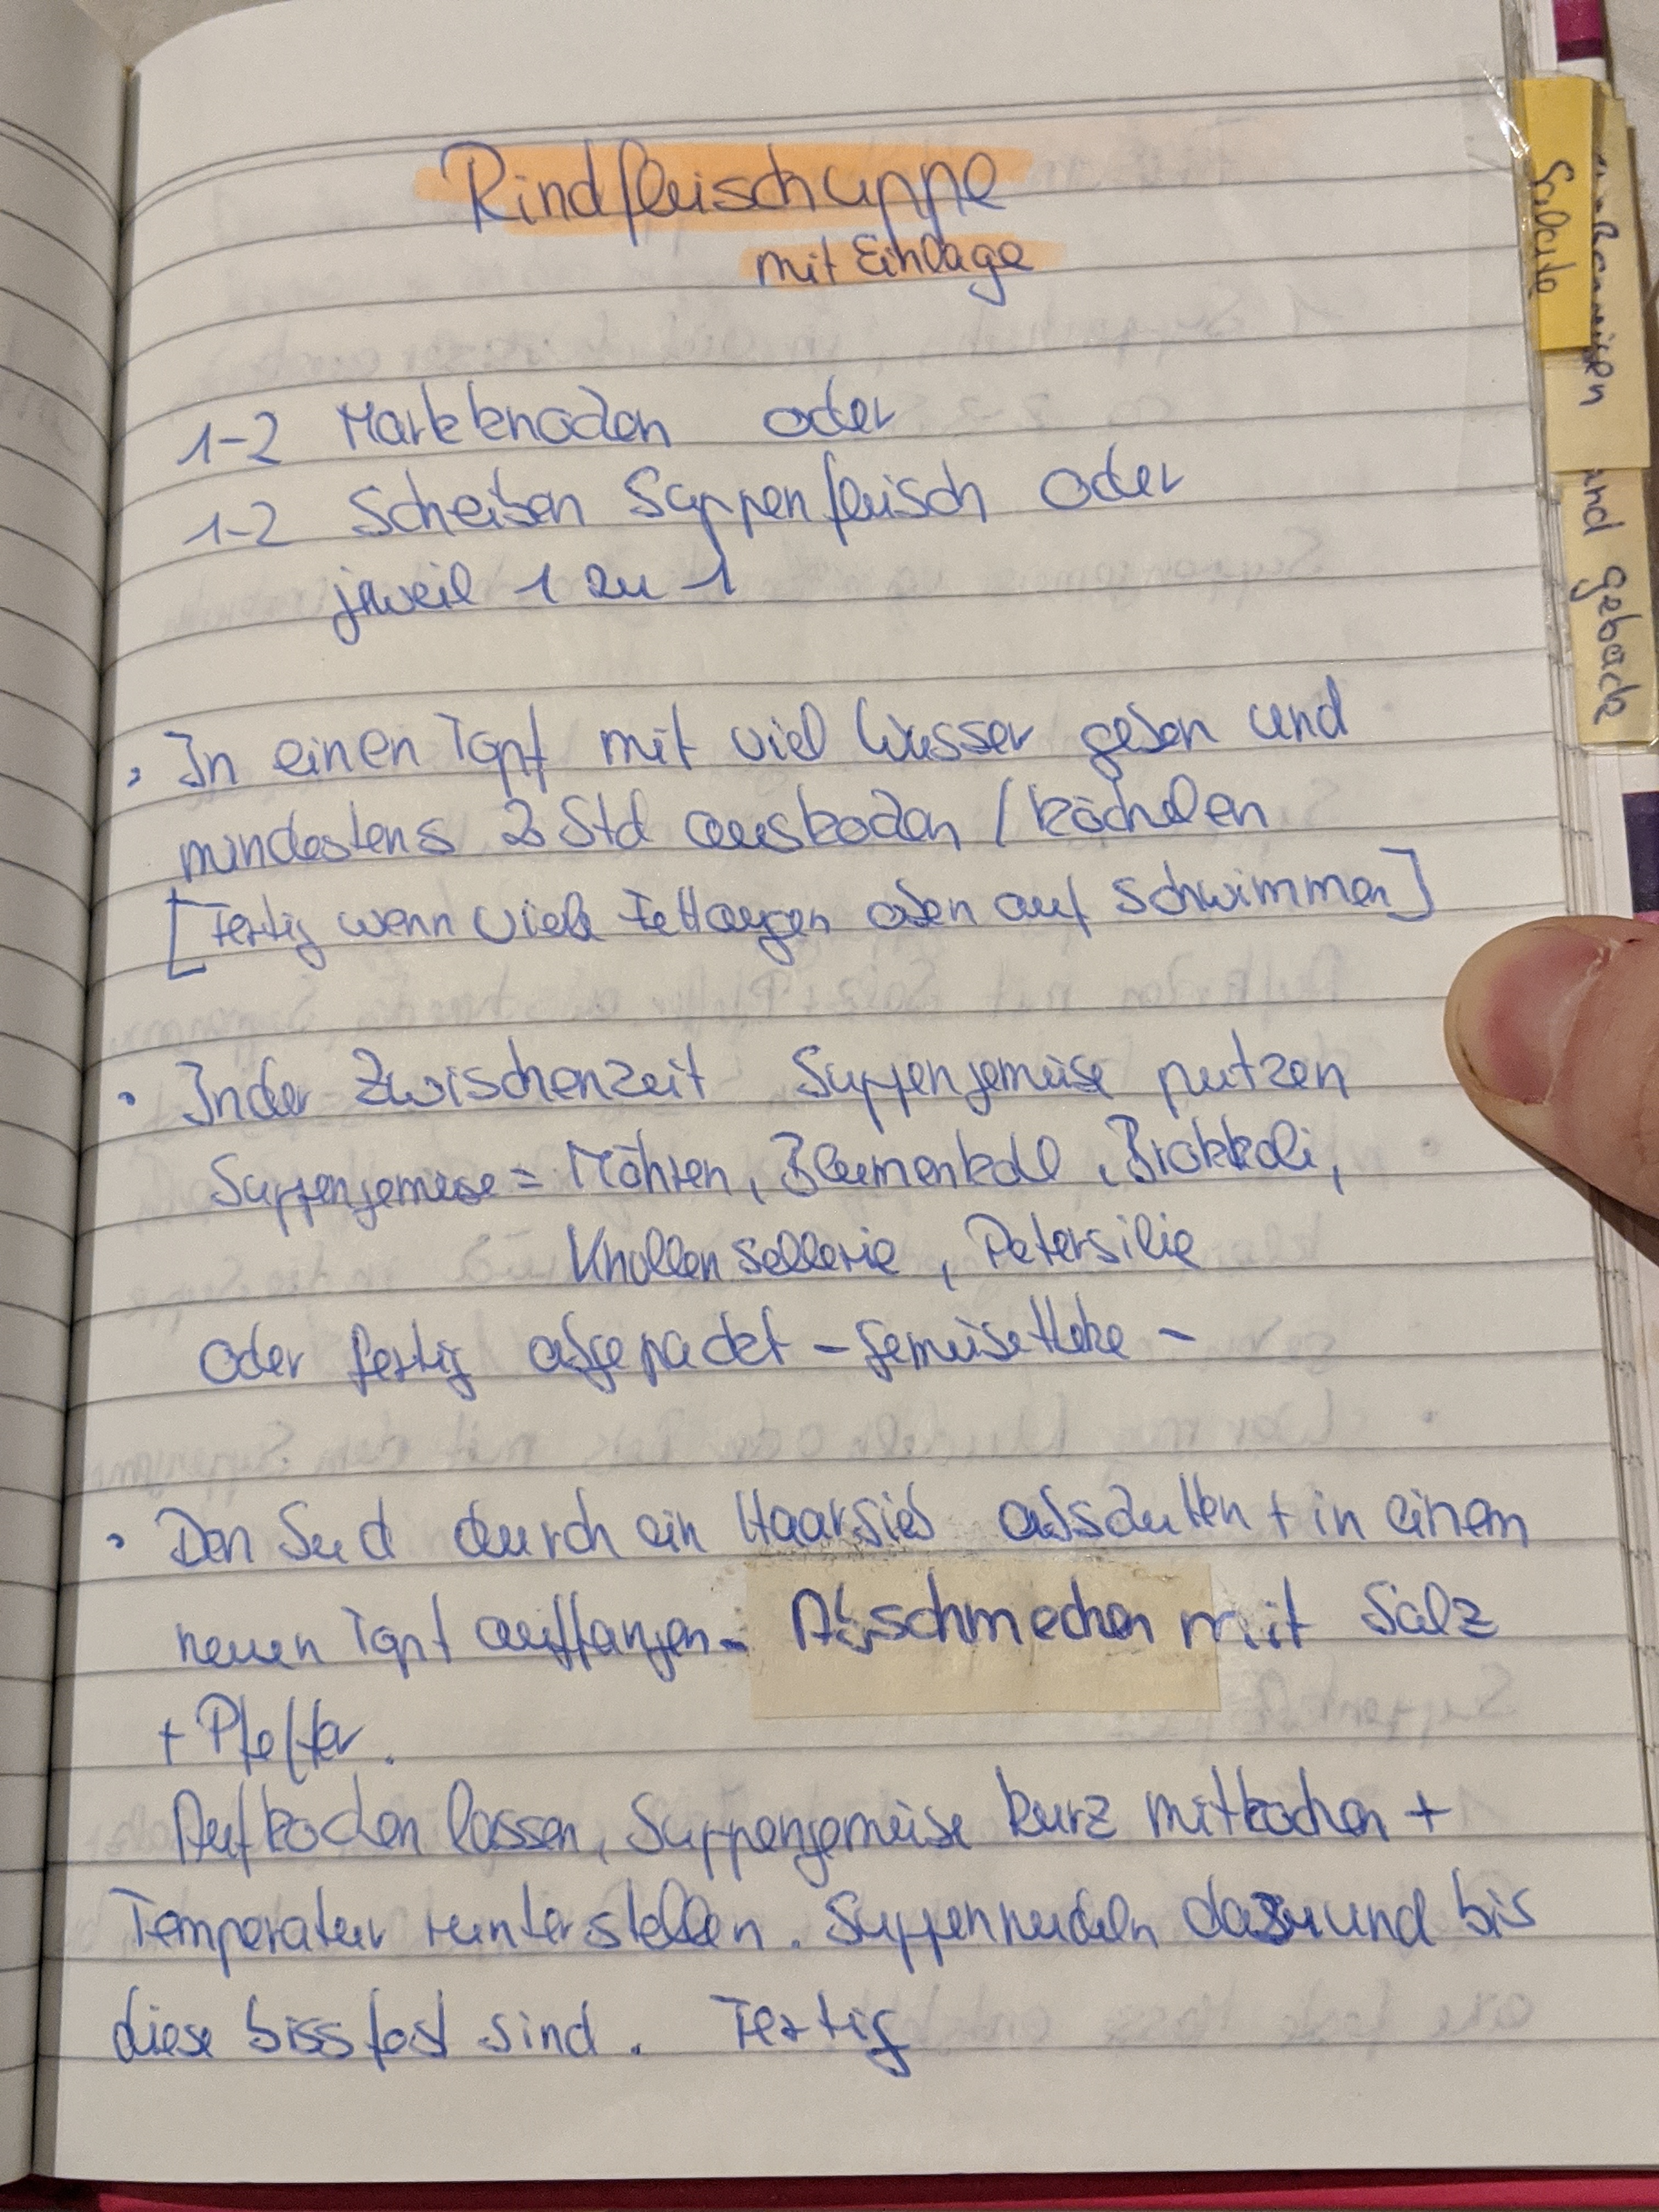 Rindfleischuppe
mit Einlage
1-2 Markknochen oder
1-2 Scheiben Suppenfleisch oder
jeweil 1 zu 1
• In einen Topf mit viel Wasser geben und
mindestens 2 Std auskochen / köcheln
[Fertig wenn viele Fettaugen oben auf schwimmen]
• In der Zwischenzeit Suppengemüse putzen
Suppengemüse = Möhren, Blumenkohl, Brokkoli,
Knollensellerie, Petersilie
oder fertig abgepackt - Gemüsetheke -
• Den Sud durch ein Haarsieb abschütten + in einem
neuen Topf auffangen. Abschmecken mit Salz
+ Pfeffer.
Aufkochen lassen, Suppengemüse kurz mitkochen +
Temperatur runterstellen. Suppennudeln dazu und bis
diese bissfest sind. Fertig
Salate
und Gebäck